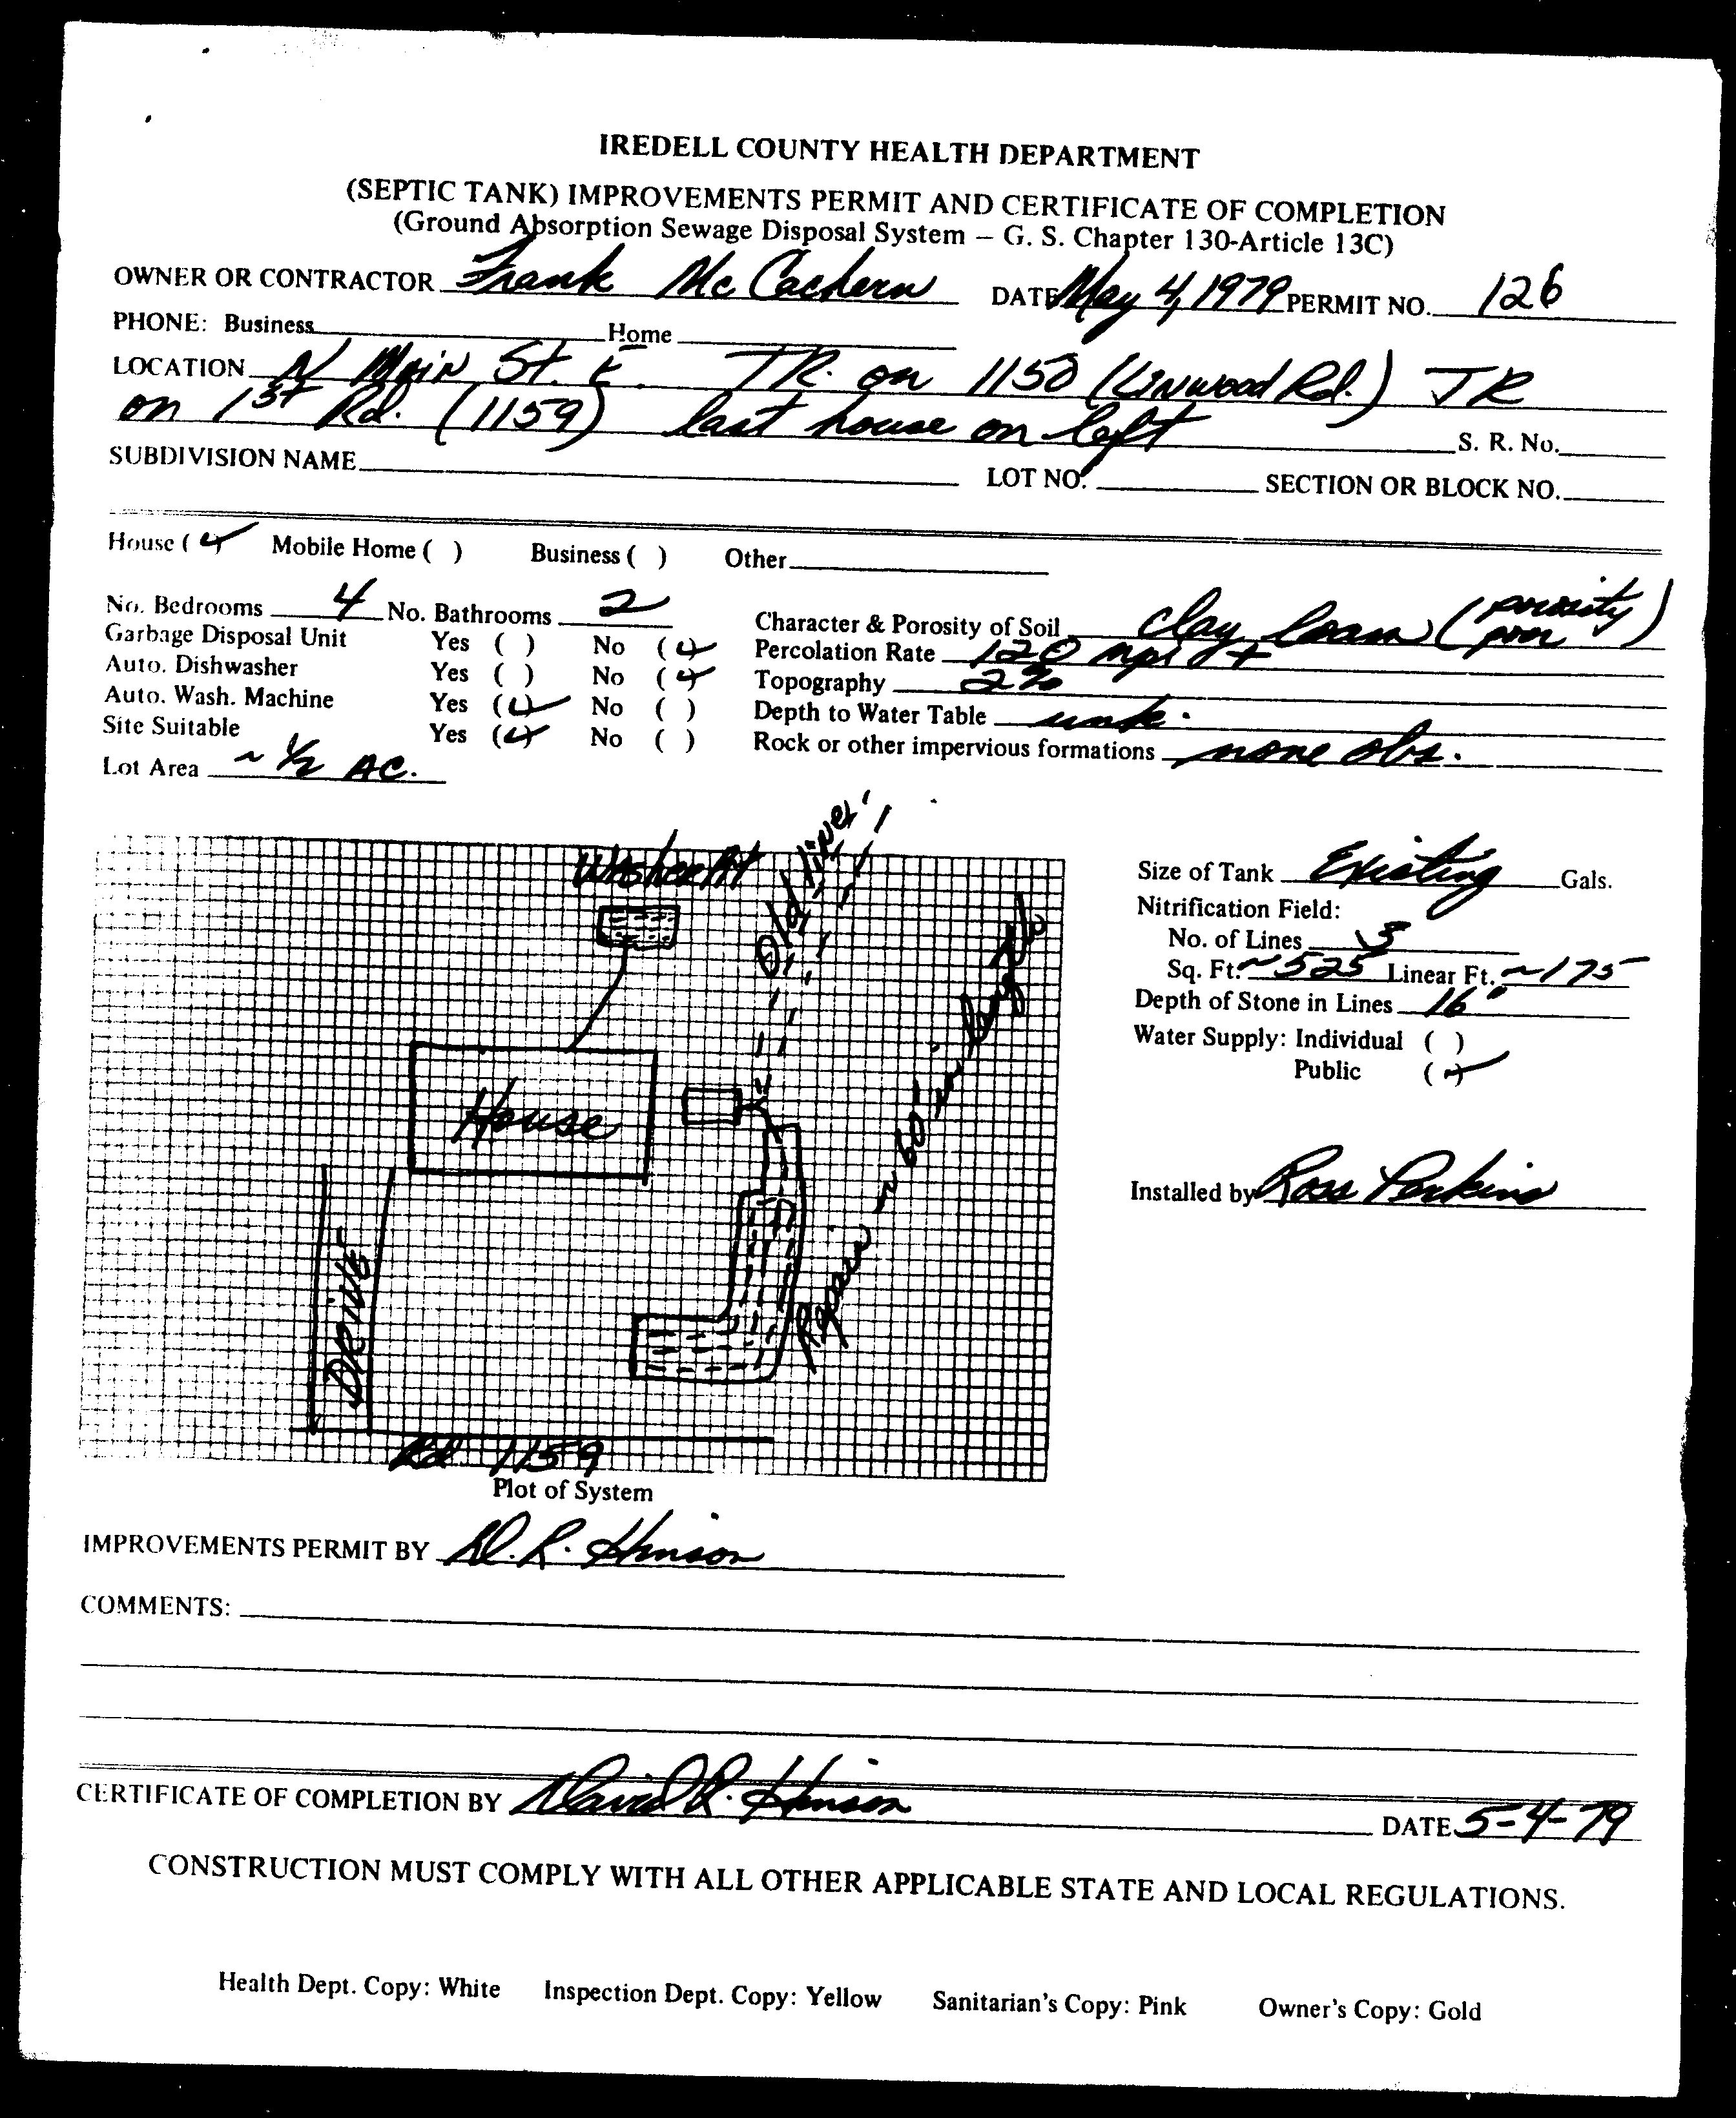 IREDELL COUNTY HEALTH DEPARTMENT
(SEPTIC TANK) IMPROVEMENTS PERMIT AND CERTIFICATE OF COMPLETION
(Ground Absorption Sewage Disposal System – G. S. Chapter 130-Article 13C)
OWNER OR CONTRACTOR Frank McCachern DATE May 4, 1979 PERMIT NO. 126
PHONE: Business Home
LOCATION N Main St. E. TR. on 1150 (Linwood Rd.) TR
on 1st Rd. (1159) last house on left S. R. No.
SUBDIVISION NAME LOT NO. SECTION OR BLOCK NO.
House ( ) Mobile Home ( ) Business ( ) Other
No. Bedrooms 4 No. Bathrooms 2
Garbage Disposal Unit Yes ( ) No ( )
Auto. Dishwasher Yes ( ) No ( )
Auto. Wash. Machine Yes ( ) No ( )
Site Suitable Yes ( ) No ( )
Lot Area ~ 1/2 AC.
Character & Porosity of Soil clay loam (porosity poor)
Percolation Rate 120 mpi +
Topography 2%
Depth to Water Table unk.
Rock or other impervious formations none obs.
Washer Pit
Old lines
House
Repair ~ 60' in length
DRIVE
Rd 1159
Plot of System
Size of Tank Existing Gals.
Nitrification Field:
No. of Lines 3
Sq. Ft. ~525 Linear Ft. ~175
Depth of Stone in Lines 16"
Water Supply: Individual ( )
Public ( )
Installed by Ross Perkins
IMPROVEMENTS PERMIT BY D. R. Hinson
COMMENTS:
CERTIFICATE OF COMPLETION BY David R. Hinson DATE 5-4-79
CONSTRUCTION MUST COMPLY WITH ALL OTHER APPLICABLE STATE AND LOCAL REGULATIONS.
Health Dept. Copy: White Inspection Dept. Copy: Yellow Sanitarian's Copy: Pink Owner's Copy: Gold